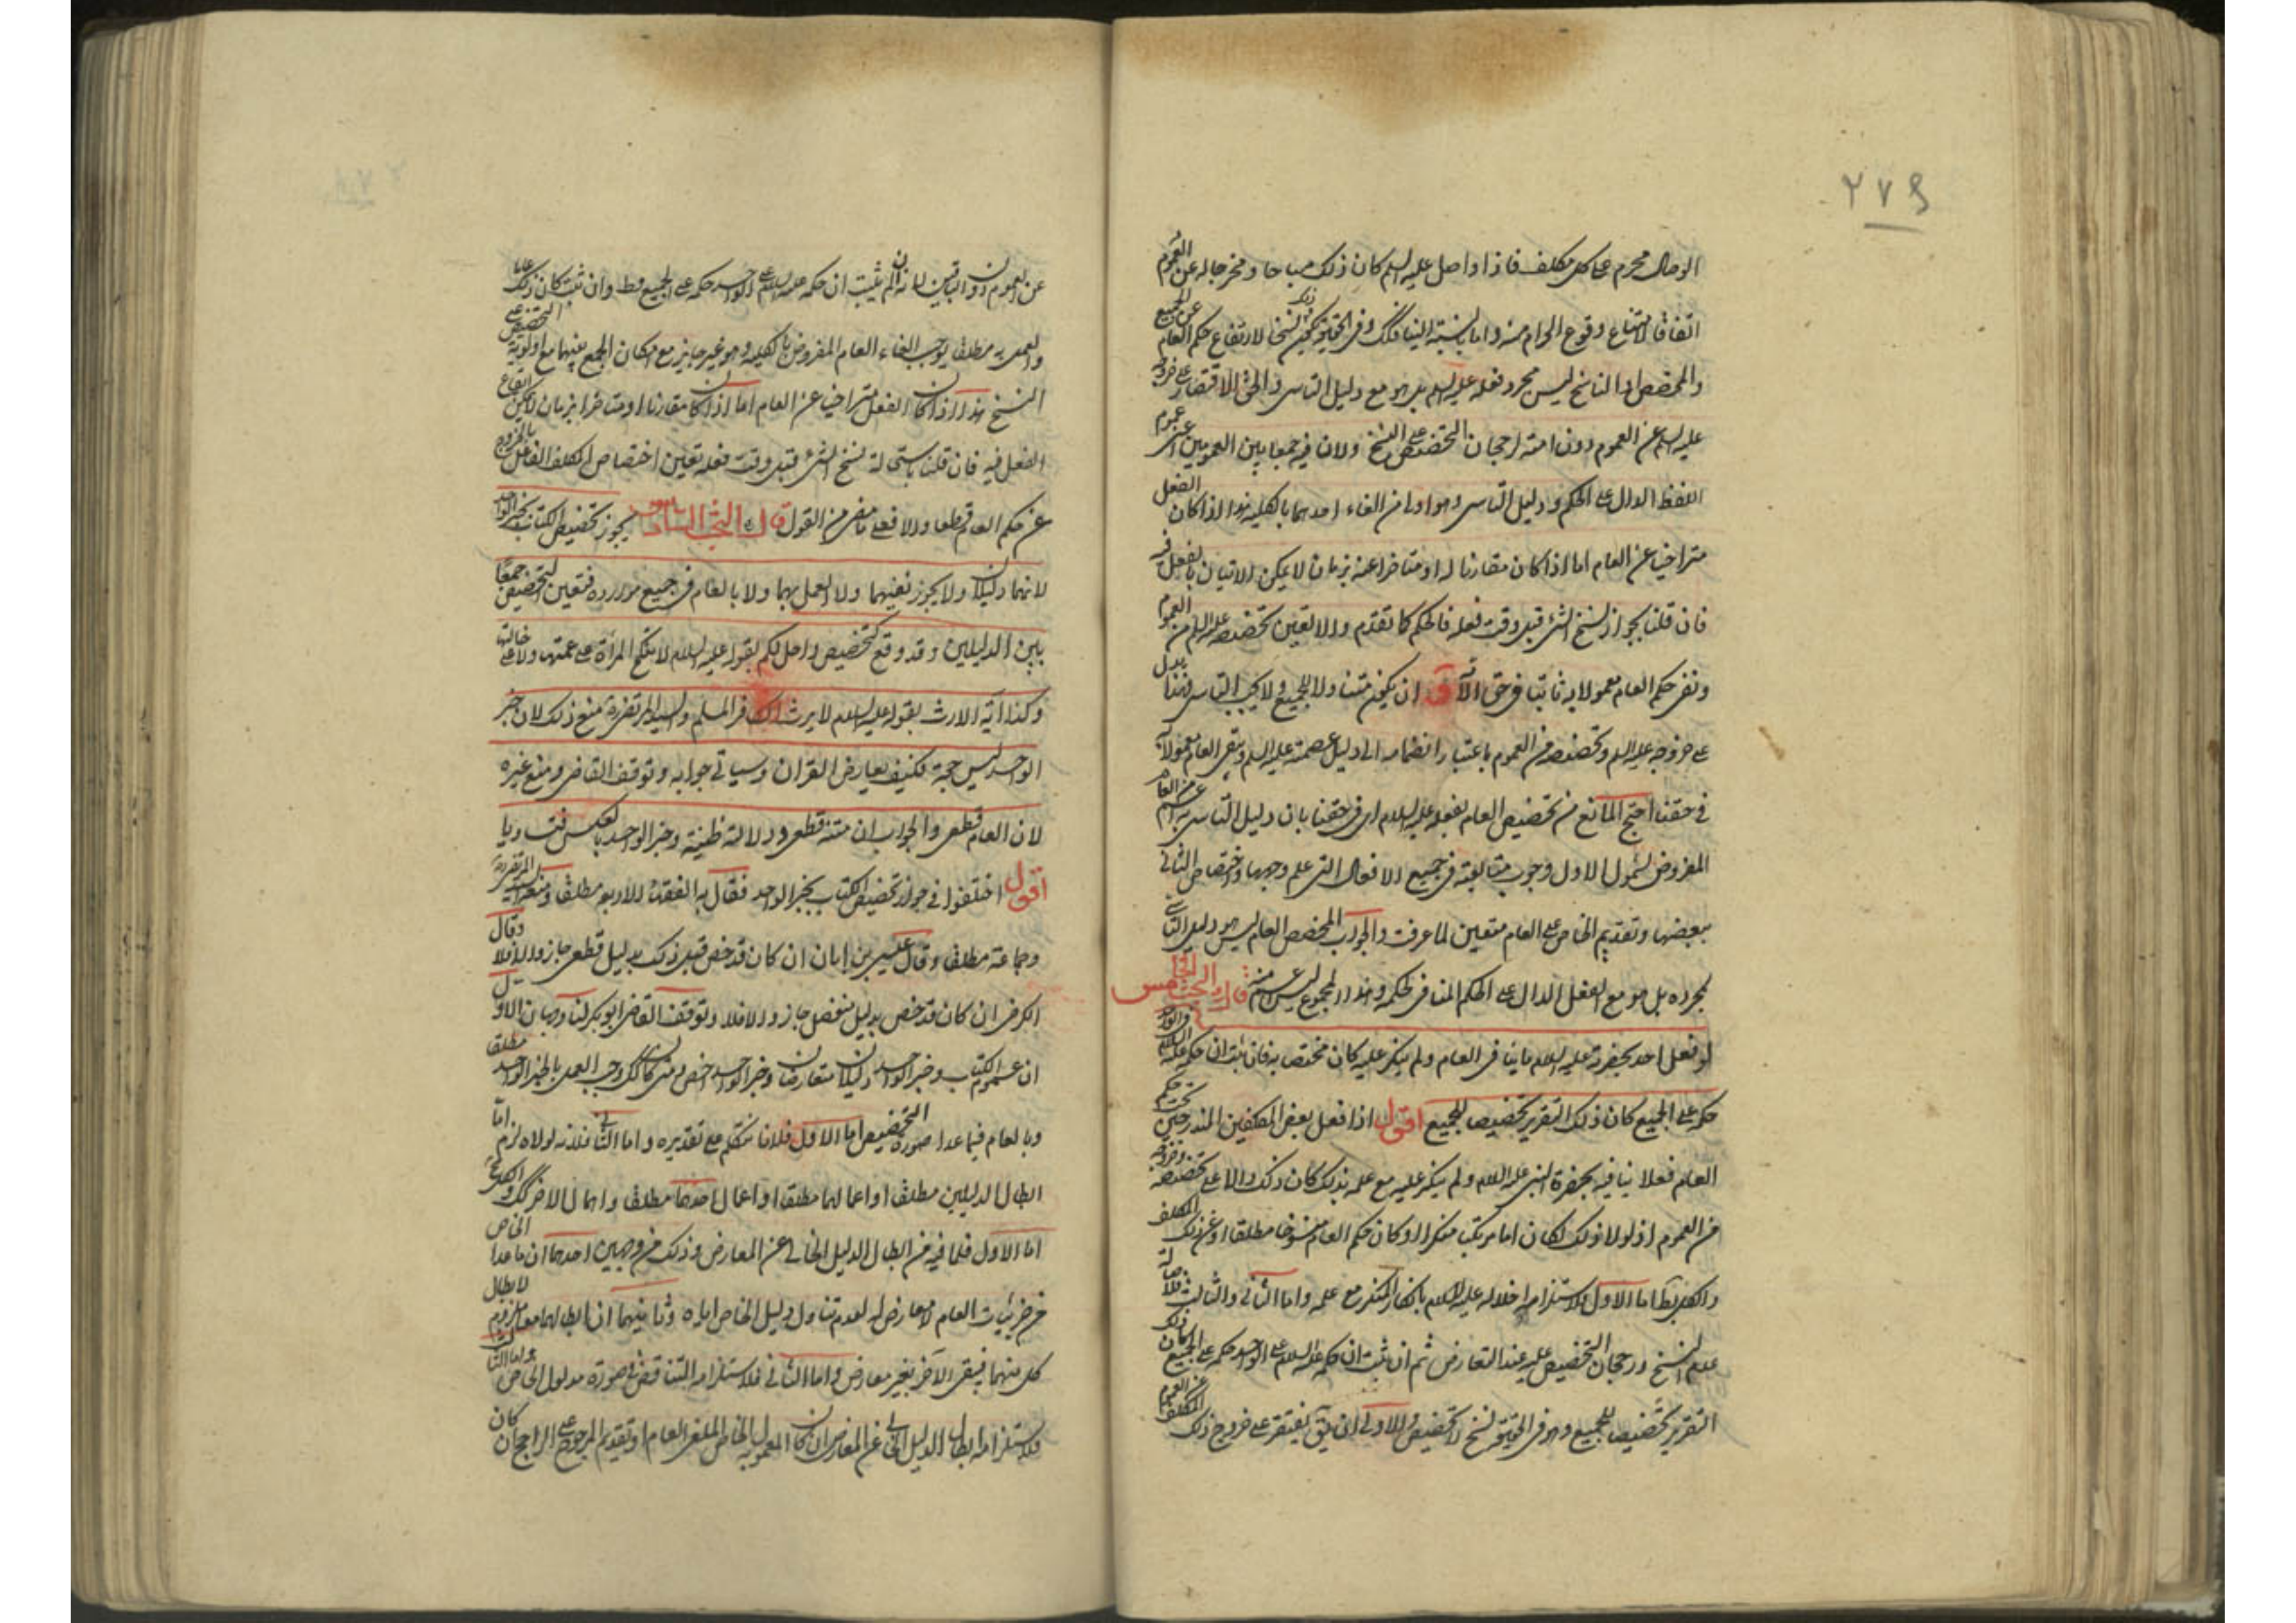 ٢٧٩
الوصال محرم على كل مكلف فاذا واصل عليه السلم كان ذلك مباحا ومخرجا له عن العموم
اتفاقا لامتناع وقوع الحرام منه واما بالنسبة الينا فكك وفى الحقيقة يكون ذلك نسخا لارتفاع حكم العام عن الجميع
والمخصص او الناسخ ليس مجرد فعله عليه السلم بل هو مع دليل التاسى والحق الاقتصار على خروجه
عليه السلم عن العموم دون امته لرجحان التخصيص على النسخ ولان فيه جمعا بين العمومين اعنى عموم
اللفظ الدال على الحكم ودليل التاسى وهو اولى من الغاء احدهما بالكلية هذا اذا كان الفعل
متراخيا عن العام اما اذا كان مقارنا له او متاخرا عنه بزمان لا يمكن الاتيان بالفعل فيه
فان قلنا بجواز نسخ الشئ قبل وقت فعله فالحكم كما تقدم والا تعين تخصيصه عليه السلم من العموم
وبقى حكم العام معمولا به ثابتا فى حق الامة ان يكون متناولا للجميع ولا يجب التاسى لهذا بدل
على خروجه عليه السلم وتخصيصه من العموم باعتبار انضمامه الى دليل عصمته عليه السلم ويبقى العام معمولا به
فى حقنا احتج المانع من تخصيص العام بفعله عليه السلام اى فى حقنا بان دليل التاسى به اعم من العام
المفروض لشمول الاول وجوب متابعته فى جميع الافعال التى علم وجهها واختصاص الثانى
ببعضها وتقديم الخاص على العام متعين لما عرفت والجواب المخصص للعام ليس هو دليل التاسى
بمجرده بل هو مع الفعل الدال على الحكم المنافى لحكمه وهذا المجموع ليس اعم منه قال البحث الخامس
لو فعل احد بحضرته عليه السلام ما ينافى العام ولم ينكر عليه كان مختصا به فان ثبت ان حكمه عليه السلام فى الواحد
حكمه على الجميع كان ذلك التقرير تخصيصا للجميع اقول اذا فعل بعض المكلفين المندرجين تحت حكم
العام فعلا ينافيه بحضرة النبى عليه السلام ولم ينكر عليه مع علمه بذلك كان ذلك دالا على تخصيصه وخروجه
من العموم اذ لولا ذلك لكان اما مرتكبا منكرا او كان حكم العام منسوخا مطلقا او عن ذلك المكلف
والكل بط اما الاول فلاستلزامه اخلاله عليه السلام بانكار المنكر مع علمه واما الثانى والثالث فلاصالة
عدم النسخ ورجحان التخصيص عليه عند التعارض ثم ان ثبت ان حكمه عليه السلام على الواحد حكمه على الجميع كان ذلك
التقرير تخصيصا للجميع وهو فى الحقيقة نسخ لا تخصيص والاولى ان يق يقتصر على خروج ذلك المكلف من العموم
عن العموم دون الباقين لانه ان لم يثبت ان حكمه عليه السلام على الواحد حكمه على الجميع فظ وان ثبت كان ذلك عاما
والعمل به مطلقا يوجب الغاء العام المفروض بالكلية وهو غير جايز مع امكان الجمع بينهما مع اولوية التخصيص على
النسخ هذا اذا كان الفعل متراخيا عن العام اما اذا كان مقارنا او متاخرا بزمان لا يمكن ايقاع
الفعل فيه فان قلنا باستحالة نسخ الشئ قبل وقت فعله تعين اختصاص المكلف الفاعل بالخروج
عن حكم العام قطعا والا فعلى ما مضى من القول قال البحث السادس يجوز تخصيص الكتاب بخبر الواحد
لانهما دليلان ولا يجوز نفيهما ولا العمل بهما ولا بالعام فى جميع موارده فتعين التخصيص جمعا
بين الدليلين وقد وقع كتخصيص واحل لكم بقوله عليه السلام لا تنكح المرأة على عمتها ولا على خالتها
وكذا آية الارث بقوله عليه السلام لا يرث الكافر المسلم والسيد المرتضى ره منع ذلك لان خبر
الواحد ليس حجة فكيف يعارض القران وسياتى جوابه وتوقف القاضى ومنع غيره
لان العام قطعى والجواب ان متنه قطعى ودلالته ظنية وخبر الواحد بالعكس فتساويا
اقول اختلفوا فى جواز تخصيص الكتاب بخبر الواحد فقال به الفقهاء الاربعة مطلقا ومنعه السيد المرتضى ره
وجماعة مطلقا وقال عيسى بن ابان ان كان قد خص قبل ذلك بدليل قطعى جاز والا فلا وقال
الكرخى ان كان قد خص بدليل منفصل جاز والا فلا وتوقف القاضى ابو بكر لنا وجهان الاول
ان عموم الكتاب وخبر الواحد دليلان متعارضان وخبر الواحد اخص ومتى كان كك وجب العمل بالخبر الواحد مطلقا
وبالعام فيما عدا صورة التخصيص اما الاول فلانا نتكلم على تقديره واما الثانى فلانه لولاه لزم اما
ابطال الدليلين مطلقا او اعمالهما مطلقا او اعمال احدهما مطلقا واهمال الاخر كك والكل مح
اما الاول فلما فيه من ابطال الدليل الخالى عن المعارض وذلك من وجهين احدهما ان ما عدا الخاص
من جزئيات العام لا معارض له لعدم تناول دليل الخاص اياه وثانيهما ان ابطالهما معا ملزوم لابطال
كل منهما فيبقى الآخر بغير معارض واما الثانى فلاستلزامه التناقض فى صورة مدلول الخاص واما الثالث
فلاستلزامه ابطال الدليل الخالى عن المعارض ان كان المعمول به الخاص الملغى العام او تقديم المرجوح على الراجح ان كان